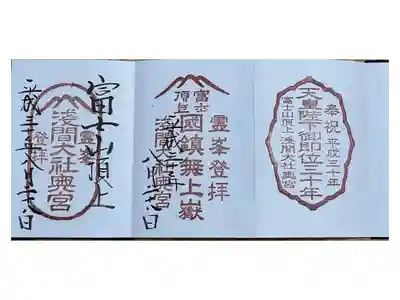 奉祝 平成三十年
天皇陛下御即位三十年
富士山頂上浅間大社奥宮
靈峯登拝
富士頂上
國鎮無上嶽
浅間大社奥宮
富士山頂上
靈峯
浅間大社奥宮
登拝
平成三十年八月